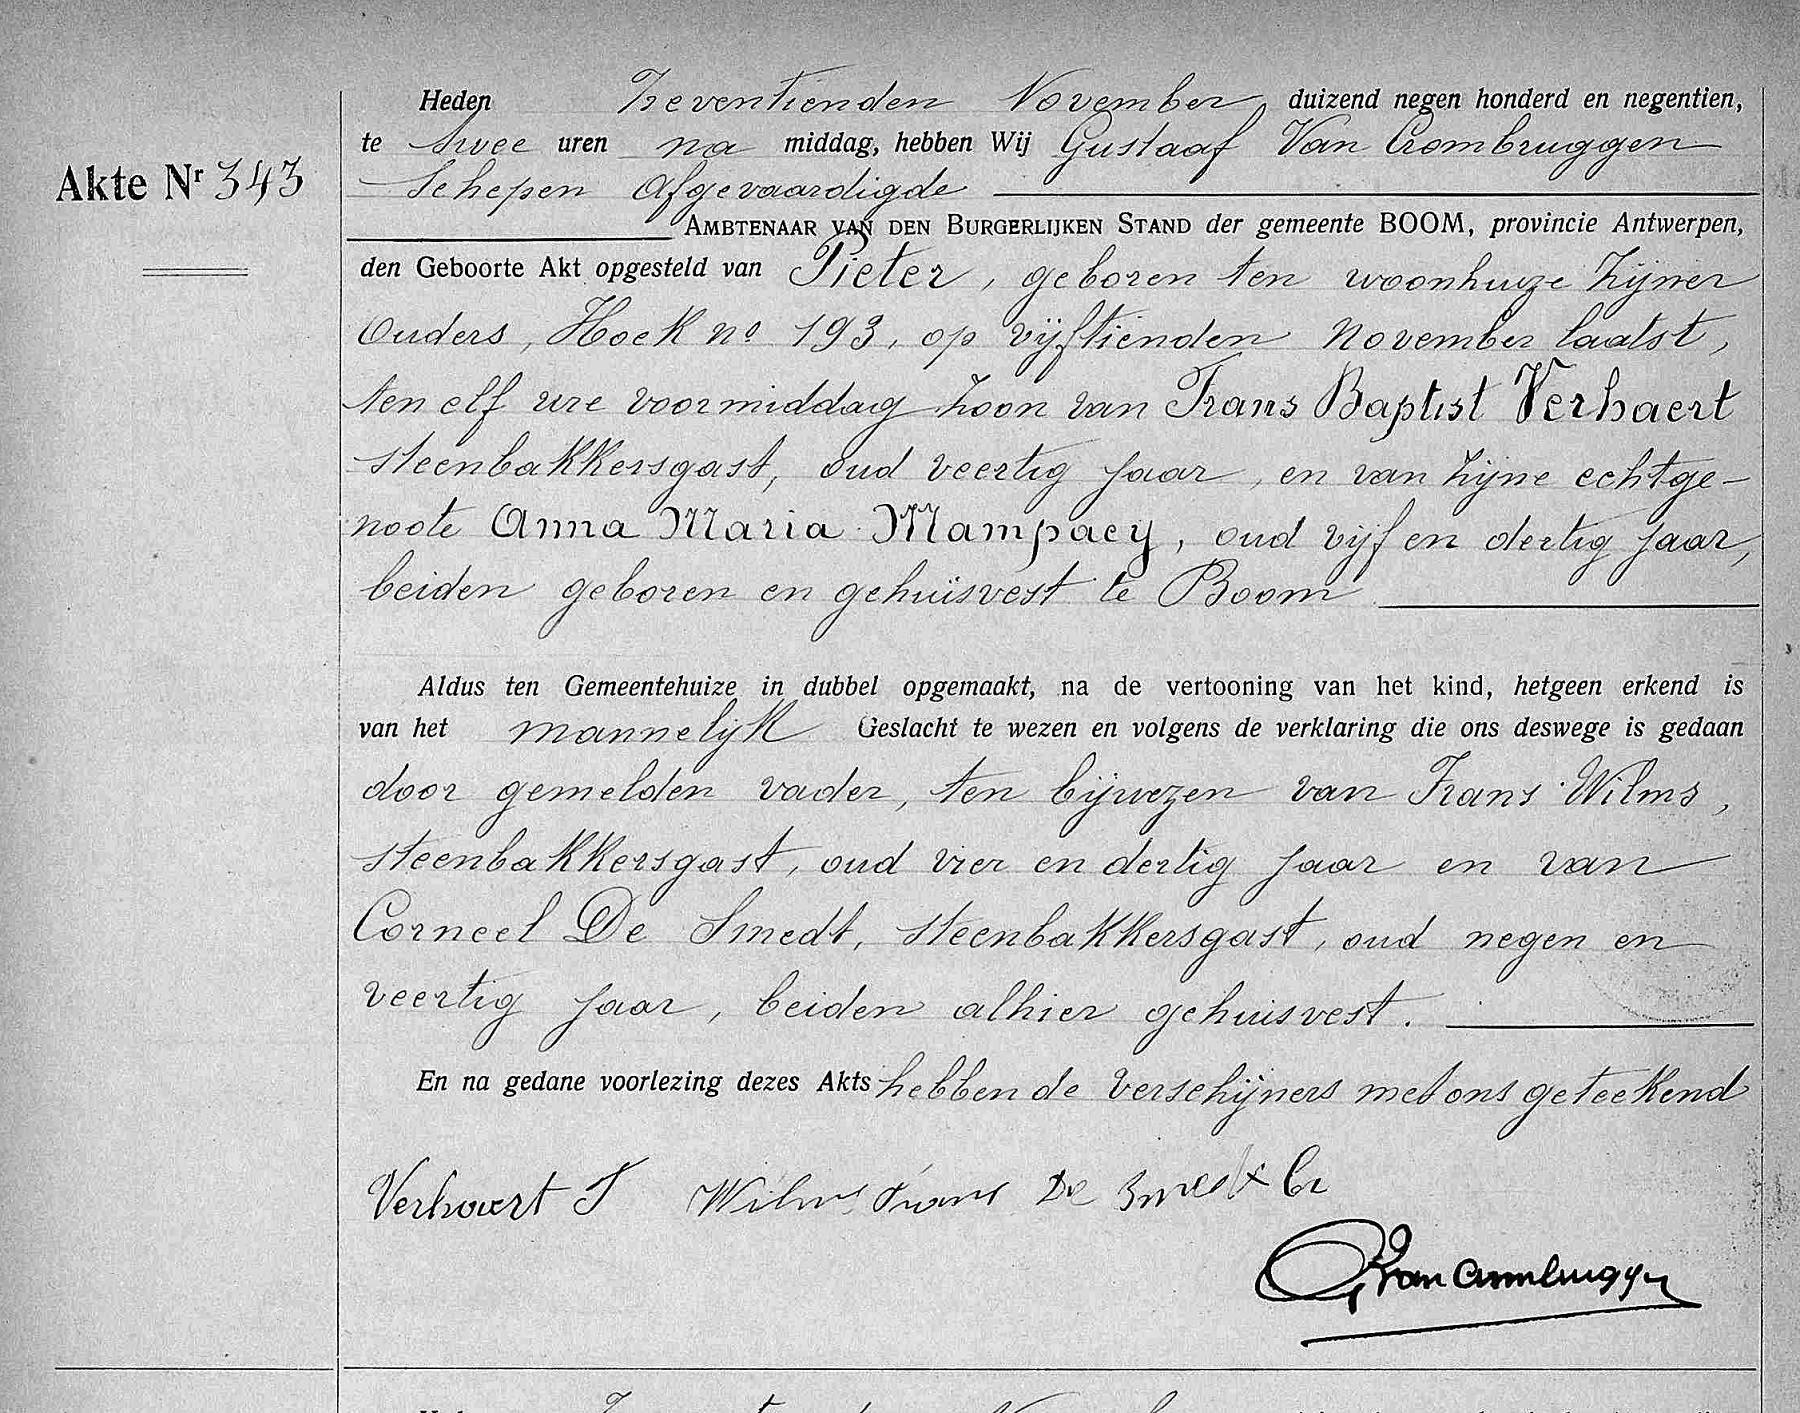 Heden Zeventienden November duizend negen honderd en negentien,
te twee uren na middag, hebben Wij Gustaaf Van Crombruggen
Akte Nr 343
Schepen Afgevaardigde
AMBTENAAR VAN DEN BURGERLIJKEN STAND der gemeente BOOM, provincie Antwerpen,
den Geboorte Akt opgesteld van Pieter, geboren ten woonhuize zijner
Ouders, Hoek no 193, op vijftienden November laatst,
ten elf ure voormiddag zoon van Frans Baptist Verhaert
steenbakkersgast, oud veertig jaar, en van zijne echtge-
noote Anna Maria Mampaey, oud vijf en dertig jaar,
beiden geboren en gehuisvest te Boom
Aldus ten Gemeentehuize in dubbel opgemaakt, na de vertooning van het kind, hetgeen erkend is
van het mannelijk Geslacht te wezen en volgens de verklaring die ons deswege is gedaan
door gemelden vader, ten bijwezen van Frans Wilms,
steenbakkersgast, oud vier en dertig jaar en van
Corneel De Smedt, steenbakkersgast, oud negen en
veertig jaar, beiden alhier gehuisvest.
En na gedane voorlezing dezes Akts hebben de verschijners met ons geteekend
Verhaert F Wilms Frans De Smedt Cr
G Van Crombruggen